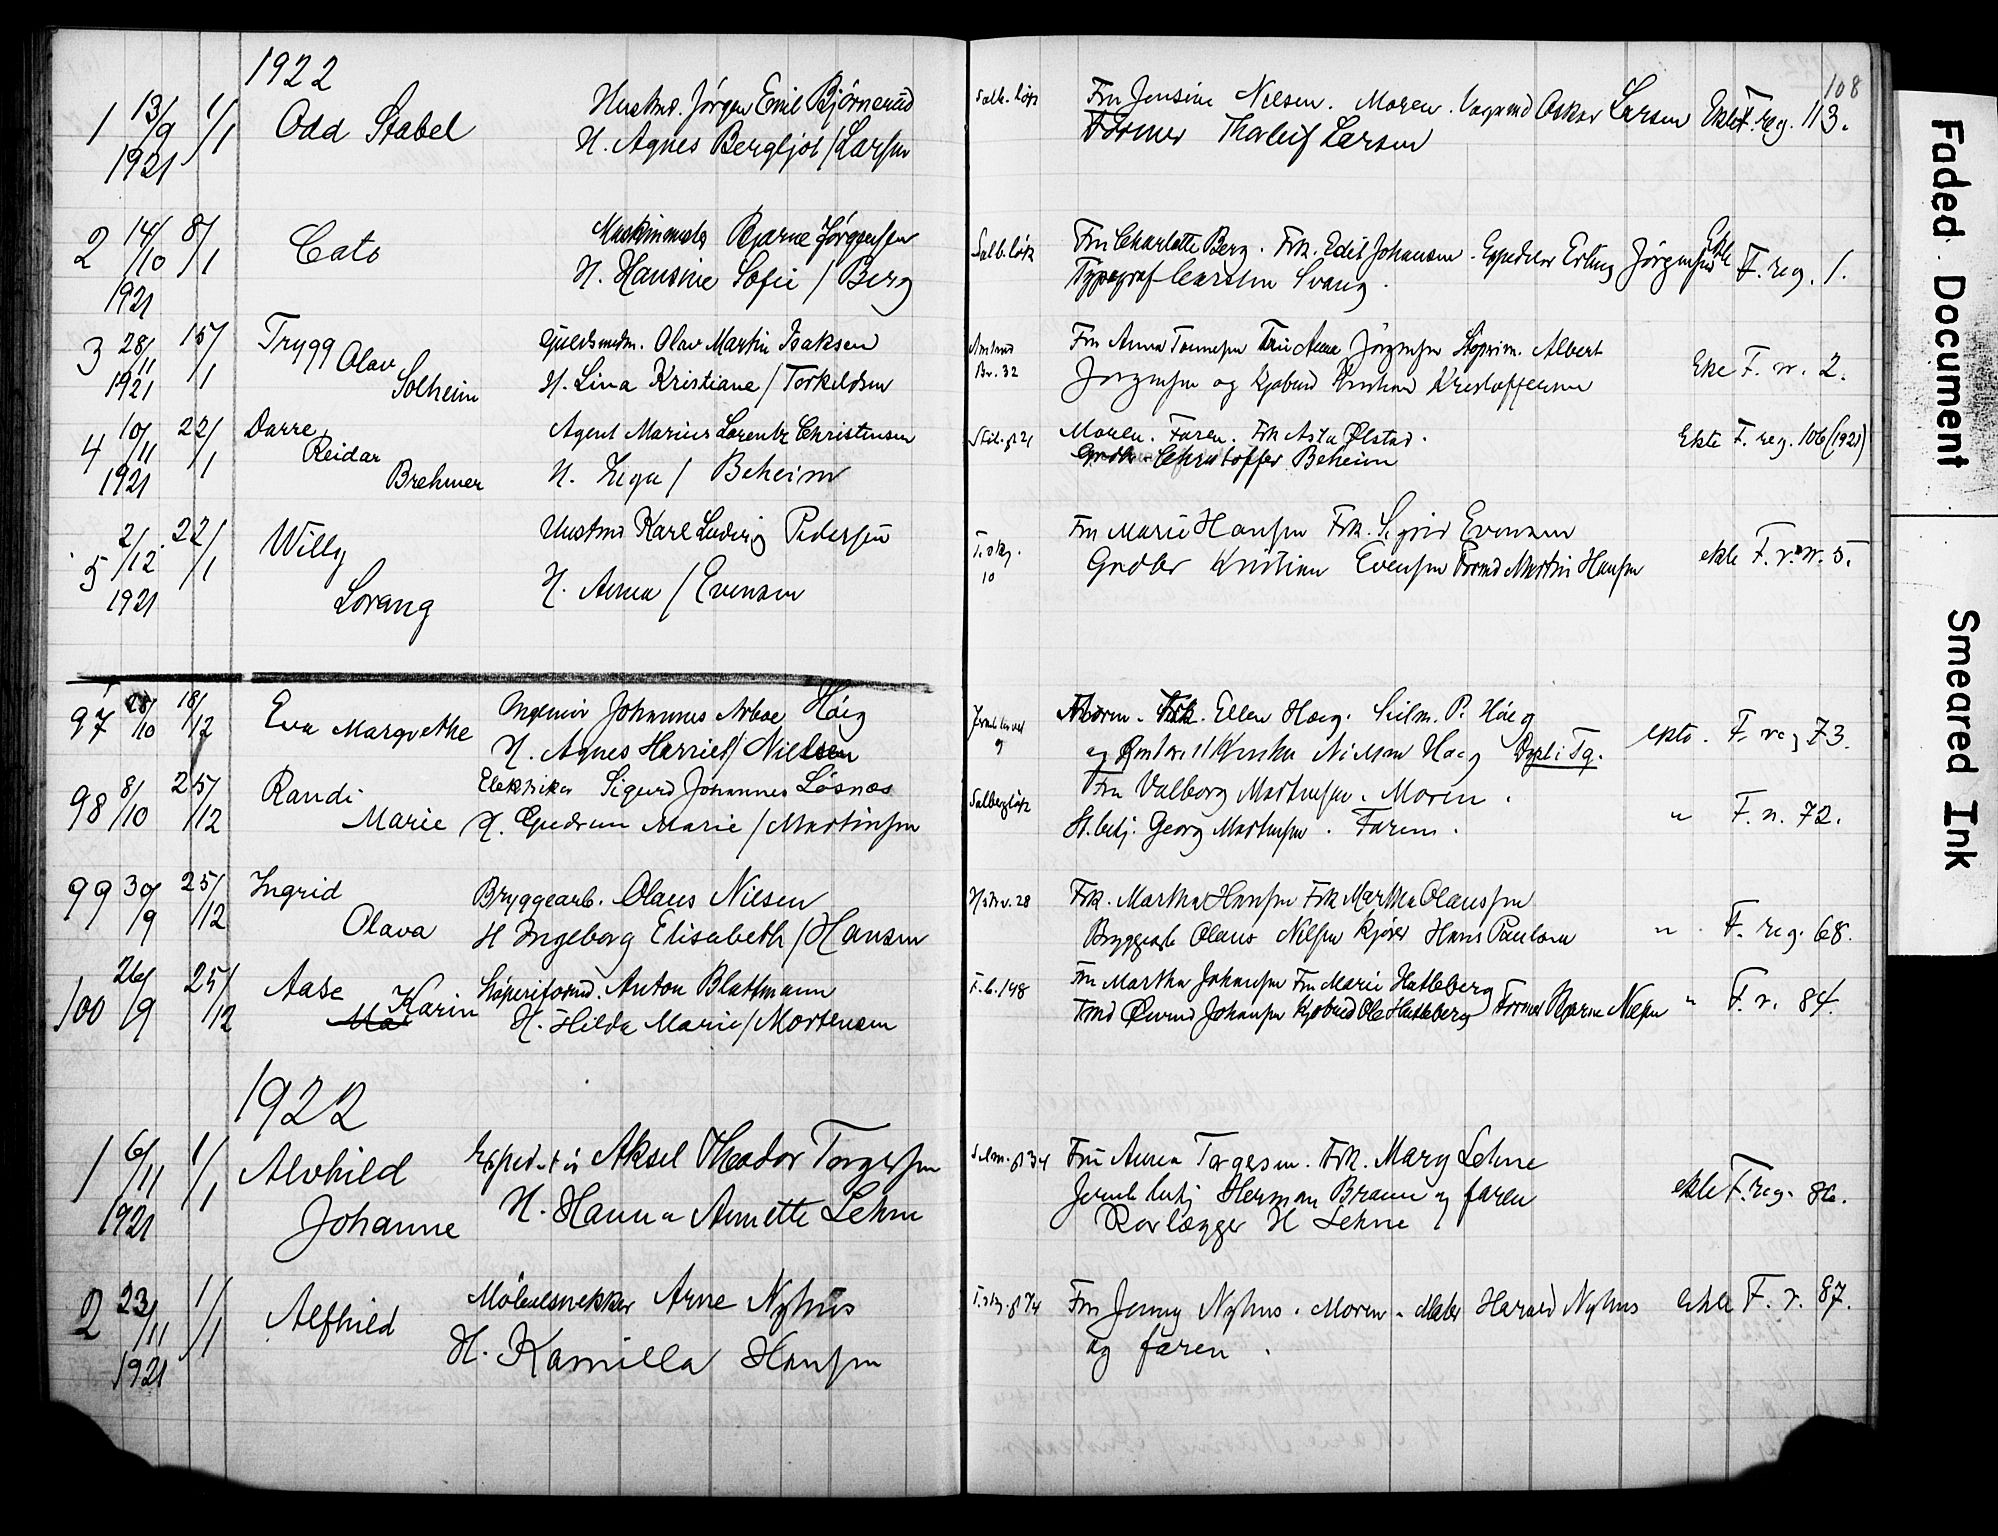 1922
108
1 13/9 1921 1/1 Odd Stabel Hustmd. Jörgen Emil Björnerud Salb. løk Fru Jensine Nilsen. Moren. Vognmd Oskar Larsen Ekte F. reg. 113.
H. Agnes Bergljot / Larsen Former Thorleif Larsen
2 14/10 1921 8/1 Cato Maskinmester Bjarne Jörgensen Salb. løk Fru Charlotte Berg. Frk. Edit Johansen. Expeditør Erling Jörgensen Ekte F. reg. 1.
H. Hansine Sofie / Berg Typograf Carsten Svang.
3 28/11 1921 15/1 Trygg Olav Solheim Guldsmedm. Olav Martin Isaksen Br. 32 Fru Anna Tønnesen Fru Anna Jörgensen Albert
H. Lina Kristiane / Torkildsen Jörgensen og Kristoffersen Ekte F. nr. 2.
4 10/11 1921 22/1 Darre Reidar Brehmer Agent Marius Lorentz Christensen Moren. Faren. Frk Asta Ølstad. Ekte F. reg. 106 (1921)
H. / Beheim Christoffer Beheim
5 2/12 1921 22/1 Willy Lorang Hustmd Karl Ludvig Pedersen 10 Fru Marie Hansen Frk. Sigrid Evensen
H. Anna / Evensen Kristian Evensen Formd Martin Hansen ekte F. r. nr. 5.
97 28/10 18/12 Eva Margrethe Ingeniør Johannes Arboe Höeg 9 Moren. Frk. Ellen Hoeg. P. Höeg
H. Agnes Harriet / Nielsen og Nielsen Hoeg Døpt i Tg. ekte. F. reg 73.
98 8/10 25/12 Randi Marie Elektriker Sigurd Johannes Lösnæs Salbergløk Fru Valborg Martinsen. Moren.
H. Gudrun Marie / Martinsen St. betj. Georg Martinsen. Faren. " F. n. 72.
99 30/9 25/12 Ingrid Olava Bryggearb. Olaus Nilsen 28 Frk. Martha Hansen Frk Martha Olaussen
H Ingeborg Elisabeth / Hansen Bryggearb Olaus Nilsen kjører Hans Paulsen " F. reg. 68.
100 26/9 25/12 Aase Karin Støperiformd. Anton Blattmann F. b. 148 Fru Martha Johansen Fru Marie Hatleberg
H. Hilda Marie / Mortensen Øivind Johansen Ole Hatleberg Former Bjarne Nilsen " F. r. 84.
1922
1 6/11 1921 1/1 Alvhild Johanne Expeditør Aksel Theodor Torgersen 34 Fru Anna Torgersen. Frk. Mary Lehne
H. Hanna Annette Lehne Jernb. betj Herman Braun og faren ekte F. reg. 86.
Rorlægger H Lehne
2 23/11 1921 1/1 Alfhild Möbelsnekker Arne Nyhus 74 Fru Jenny Nyhus. Moren. Maler Harald Nyhus ekte F. r. 87.
H. Kamilla Hansen og faren.
Faded Document
Smeared Ink